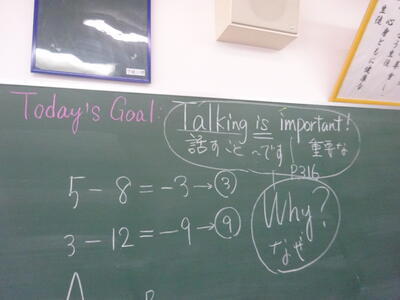 Today's Goal: Talking is important!
話すこと ~です 重要な
P316
5-8=-3→③
3-12=-9→⑨
Why?
なぜ